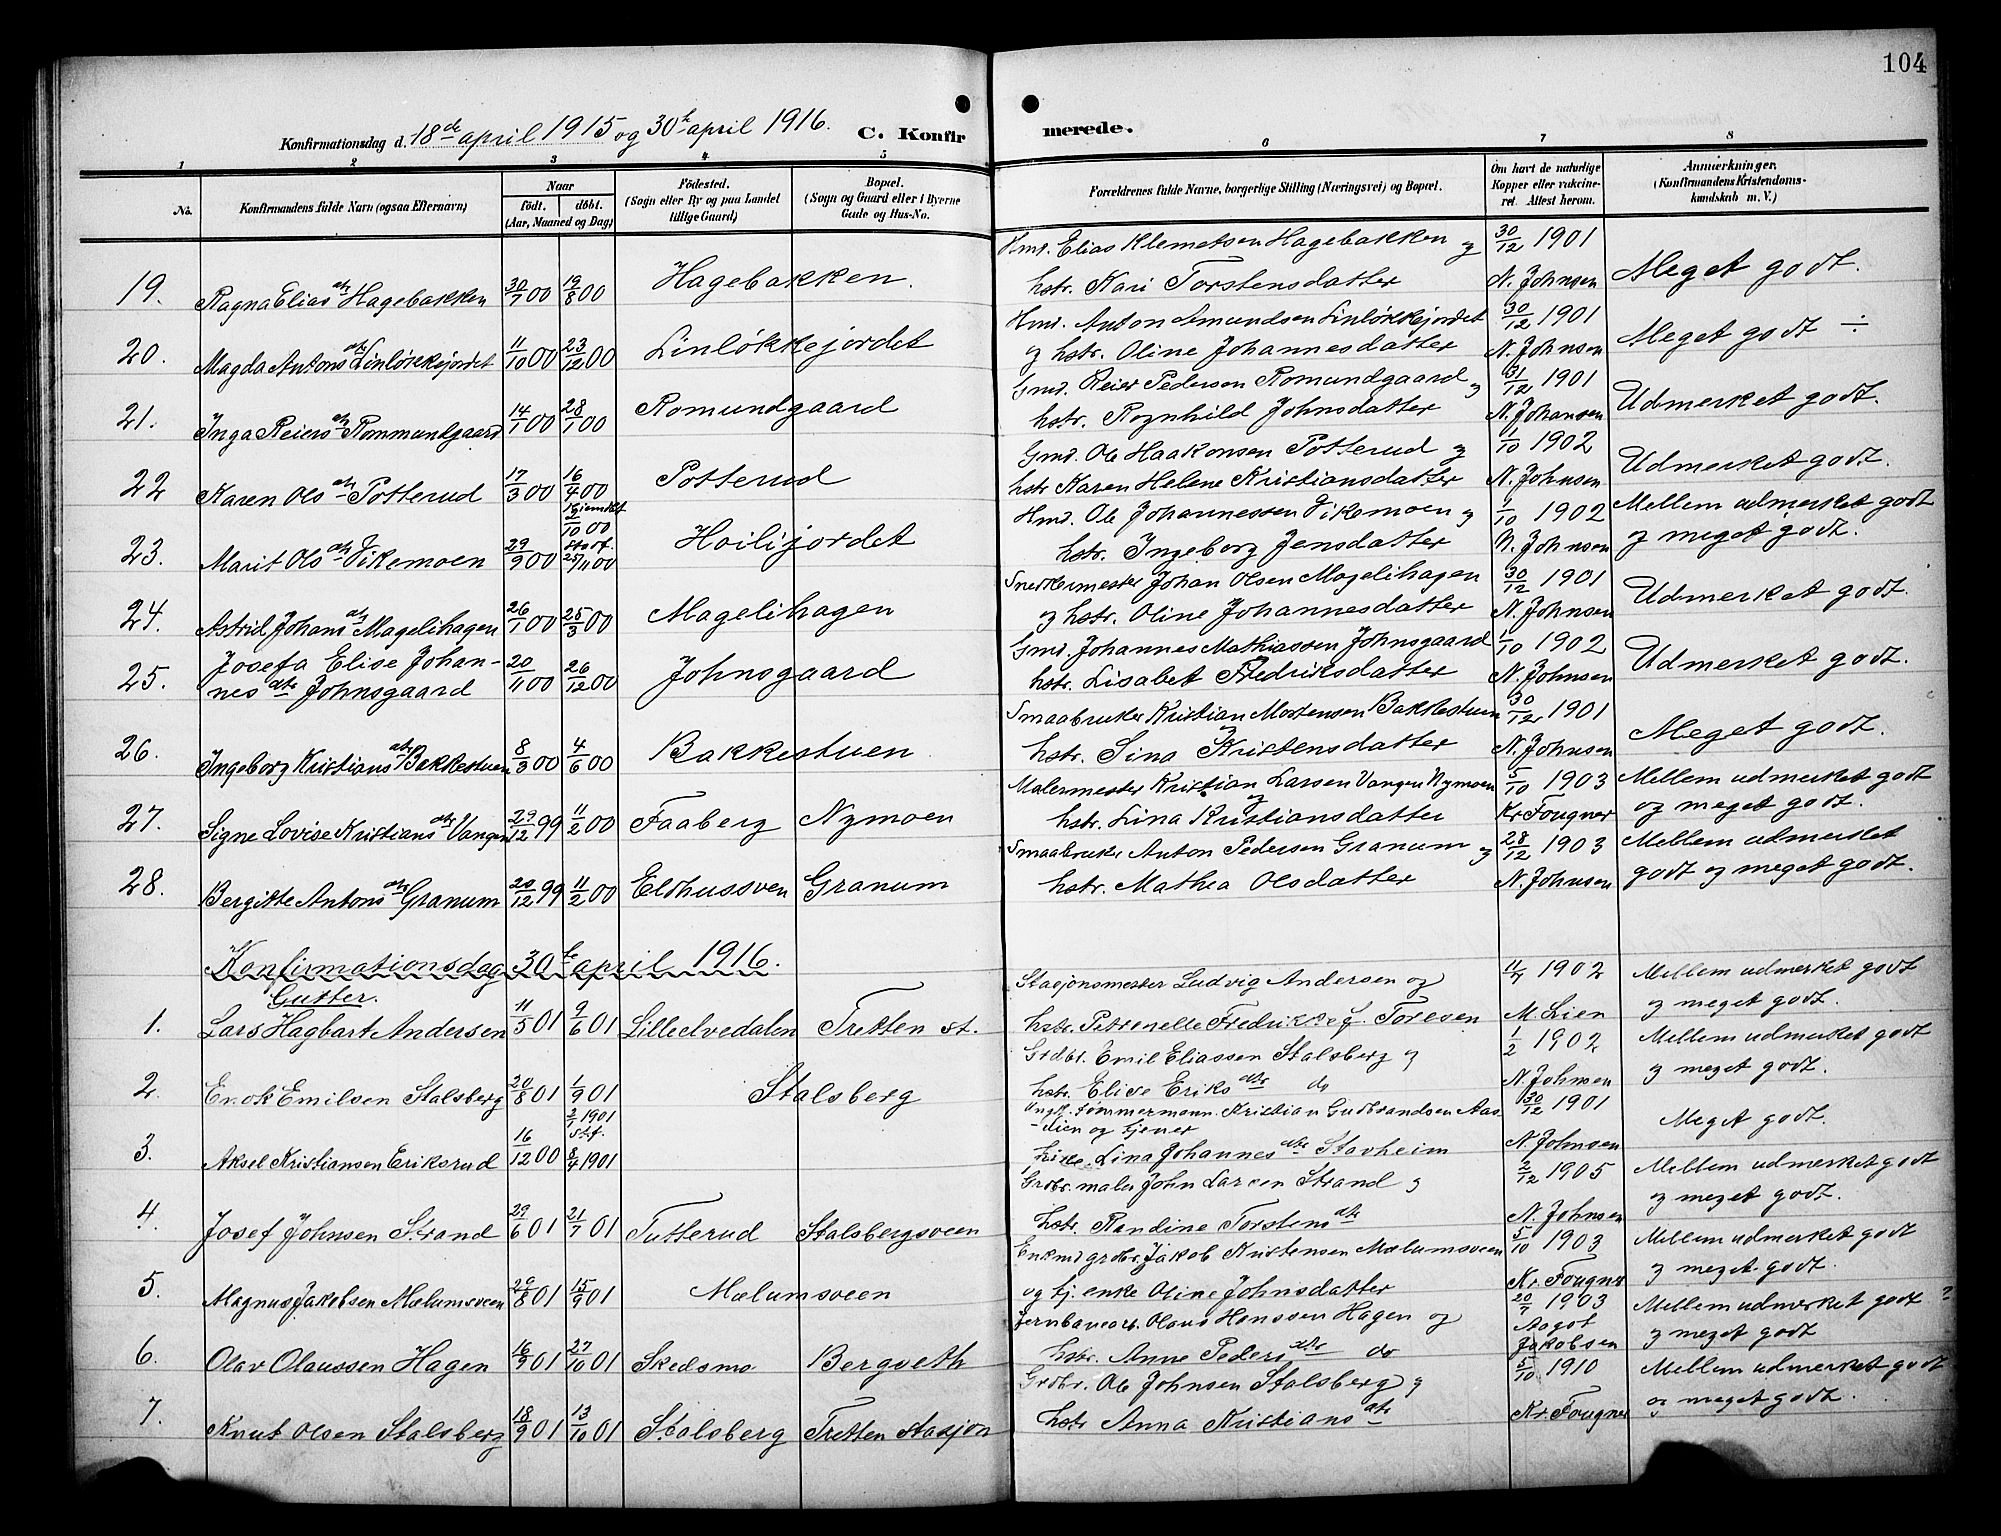 104
Konfirmationsdag d. 18de april 1915 og 30te april 1916. C. Konfirmerede.
1 2 3 4 5 6 7 8
No. Konfirmandens fulde Navn (ogsaa Efternavn) Naar født. døbt. (Aar, Maaned og Dag) Fødested. (Sogn eller By og paa Landet tillige Gaard) Bopæl. (Sogn og Gaard eller i Byerne Gade og Hus-No. Forældrenes fulde Navne, borgerlige Stilling (Næringsvei) og Bopæl. Om havt de naturlige Kopper eller vakcineret. Attest herom. Anmærkninger. (Konfirmandens Kristendomskundskab m. V.)
Gmd. Elias Klemetsen Hagebakken og 30/12 1901
19. Ragna Eliasdtr Hagebakken 30/7 00 19/8 00 Hagebakken. hstr. Kari Torstensdatter N. Johnsen Meget godt.
Hmd. Anton Amundsen Linløkkejordet 30/12 1901
20. Magda Antonsdtr Linløkkejordet 11/10 00 23/12 00 Linløkkejordet og hstr. Oline Johannesdatter N. Johnsen Meget godt ÷
Gmd. Reier Pedersen Romundgaard og 31/12 1901
21. Inga Reiersdtr Rommundgaard 14/1 00 28/1 00 Romundgaard hstr. Rognhild Johnsdatter N. Johansen Udmerket godt.
Gmd. Ole Haakonsen Potterud og 1/10 1902
22 Karen Olsdtr Potterud 17/3 00 16/4 00 Potterud hstr Karen Helene Kristiansdatter N. Johnsen Udmerket godt.
Hmd. Ole Johannessen Vikemoen og 1/10 1902 Mellem udmerket godt
23. Marit Olsdtr Vikemoen 29/9 00 Hjemdøbt 2/10 00 Stadf. 25/11 00 Hoilijordet hstr. Ingeborg Jensdatter N. Johnsen og meget godt.
Snedkermester Johan Olsen Magelihagen 30/12 1901
24. Astrid Johansdtr Magelihagen 26/1 00 25/3 00 Magelihagen og hstr. Oline Johannesdatter N. Johnsen Udmerket godt.
Josefa Elise Johan- Gmd. Johannes Mathiassen Johnsgaard 1/10 1902
25. nesdtr Johnsgaard 20/11 00 26/12 00 Johnsgaard hstr. Lisabet Fredriksdatter N. Johnsen Udmerket godt.
Smaabruker Kristian Mortensen Bakkestuen 30/12 1901
26. Ingeborg Kristiansdtr Bakkestuen 8/3 00 4/6 00 Bakkestuen hstr. Sina Kristensdatter N. Johnsen Meget godt.
Malermester Kristian Larsen Vangen Nymoen 5/10 1903 Mellem udmerket godt
27. Signe Lovise Kristiansdtr Vangen 29/12 99 11/2 00 Faaberg Nymoen og hstr. Lina Kristiansdatter Kr Fougner og meget godt.
Smaabruker Anton Pedersen Granum og 28/12 1903 Mellem udmerket
28. Bergitte Antonsdtr Granum 20/12 99 11/2 00 Eldhussven Granum hstr. Mathea Olsdatter N. Johnsen godt og meget godt.
Konfirmationsdag 30te april 1916.
Gutter.
Stasjonsmester Ludvig Andersen og 11/7 1902 Mellem udmerket godt
1. Lars Hagbart Andersen 11/5 01 9/6 01 Lilleelvedalen Tretten st. hstr. Petrenelle Fredrikke f. Toresen M. Lien og meget godt.
Grdbr. Emil Eliassen Stalsberg og 1/2 1902 Mellem udmerket godt
2. Enok Emilsen Stalsberg 20/8 01 1/9 01 Stalsberg hstr. Elise Eriksdtr do N. Johnsen og meget godt.
Ungk. tømmermann. Kristian Gudbrandsen Aas- 30/12 1901
3. Aksel Kristiansen Eriksrud 16/12 00 2/1 1901 Stf. 8/4 1901 -lien og tjener pike. Lina Johannesdtr Stavheim N. Johnsen Meget godt.
Grdbr. maler John Larsen Strand og 2/12 1905 Mellem udmerket godt
4. Josef Johnsen Strand 29/6 01 21/7 01 Tutterud Stalsbergsveen hstr. Randine Torstensdtr N. Johnsen og meget godt.
Enkmd grdbr. Jakob Kristensen Mælumsveen 5/10 1903 Mellem udmerket godt
5. Magnus Jakobsen Mælumsveen 29/8 01 15/9 01 Mælumsveen og tj. enke Oline Johnsdatter Kr. Fougner og meget godt.
Jernbanearb. Olaus Hanssen Hagen og 20/7 1903 Mellem udmerket godt
6. Olav Olaussen Hagen 16/9 01 27/10 01 Skedsmo Bergseth hstr. Anne Pedersdtr do Aagot Jakobsen og meget godt
Grdbr. Ole Johnsen Stalsberg og 5/10 1910 Mellem udmerket godt
7. Knut Olsen Stalsberg 18/9 01 13/10 01 Stalsberg Tretten Stasjon hstr Anna Kristiansdtr Kr. Fougner og meget godt.